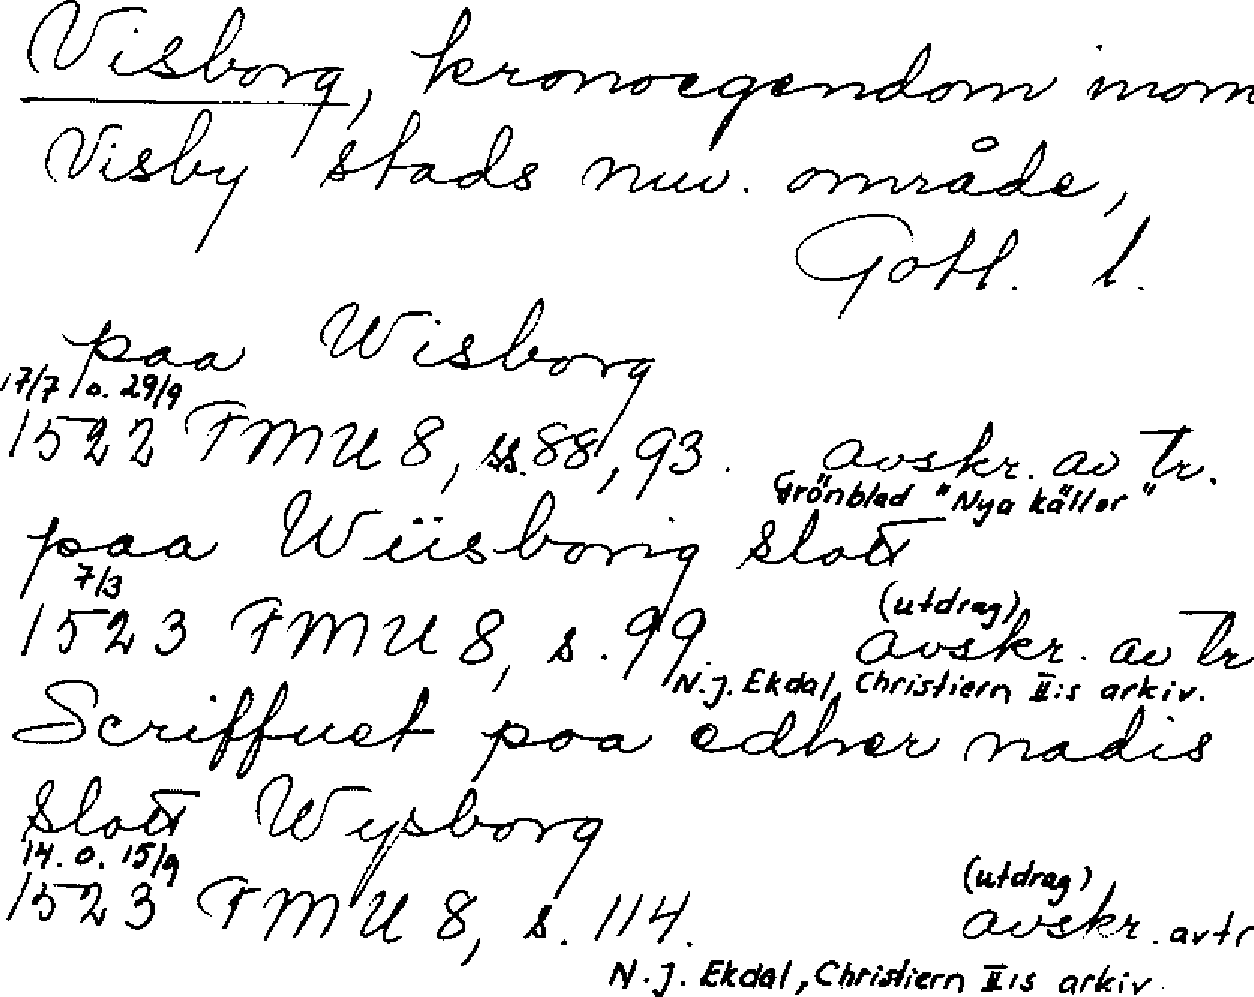 Visborg, kronoegendom inom
Visby stads nuv. område,
Gotl. l.
paa Wisborg
17/7 o. 29/9
1522 FMU 8, ss. 88, 93. avskr. av tr.
Grönblad "Nya källor"
paa Wiisborig slott
7/3 (utdrag)
1523 FMU 8, s. 99. avskr. av tr
N.J. Ekdal, Christiern II:s arkiv.
Scriffuet paa edher nadis
slott Wysborg
14. o. 15/9 (utdrag)
1523 FMU 8, s. 114. avskr. av tr
N.J. Ekdal, Christiern II:s arkiv.